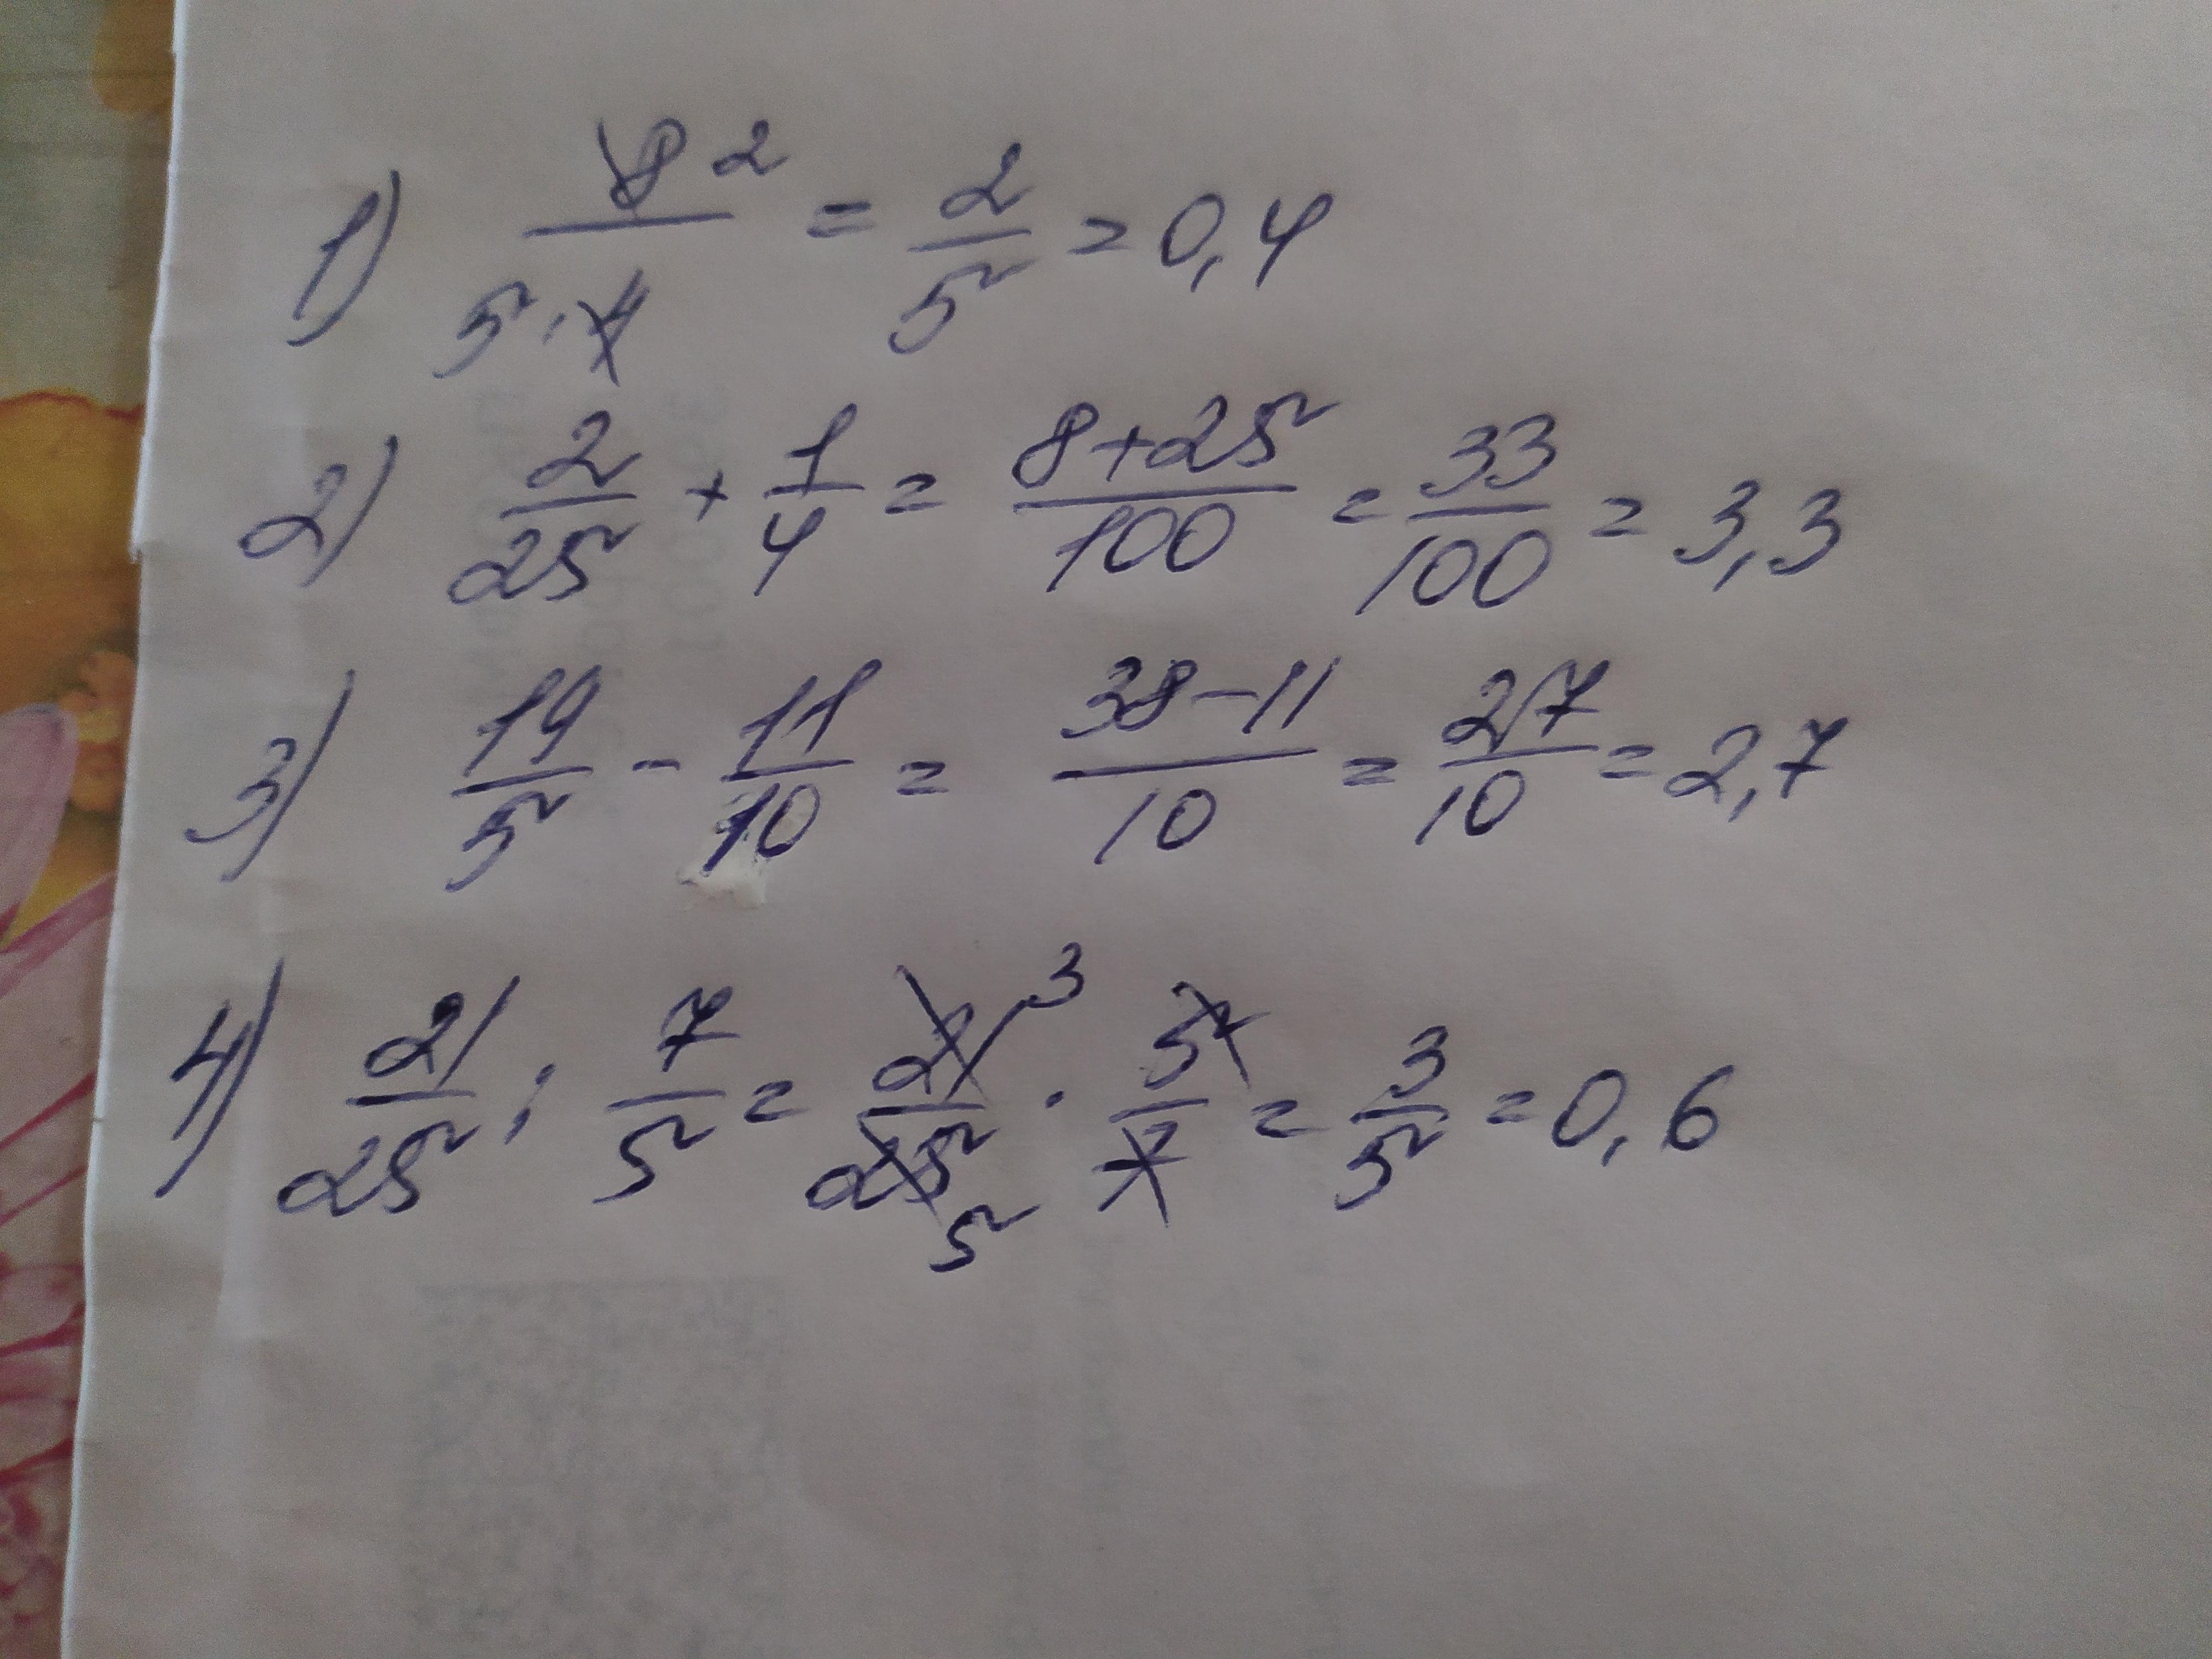 1) 8 2 / 5 · 4 = 2/5 = 0,4
2) 2/25 + 1/4 = 8+25/100 = 33/100 = 3,3
3) 19/5 - 11/10 = 38-11/10 = 27/10 = 2,7
4) 21/25 : 7/5 = 21 3/25 5 · 5/7 = 3/5 = 0,6